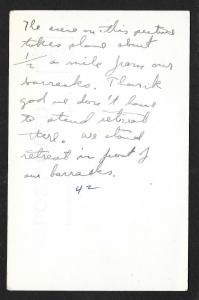 The scene on this picture
takes place about
1/2 a mile from our
barracks. Thank
god we don't have
to stand retreat
there. We stand
retreat in front of
our barracks.
42